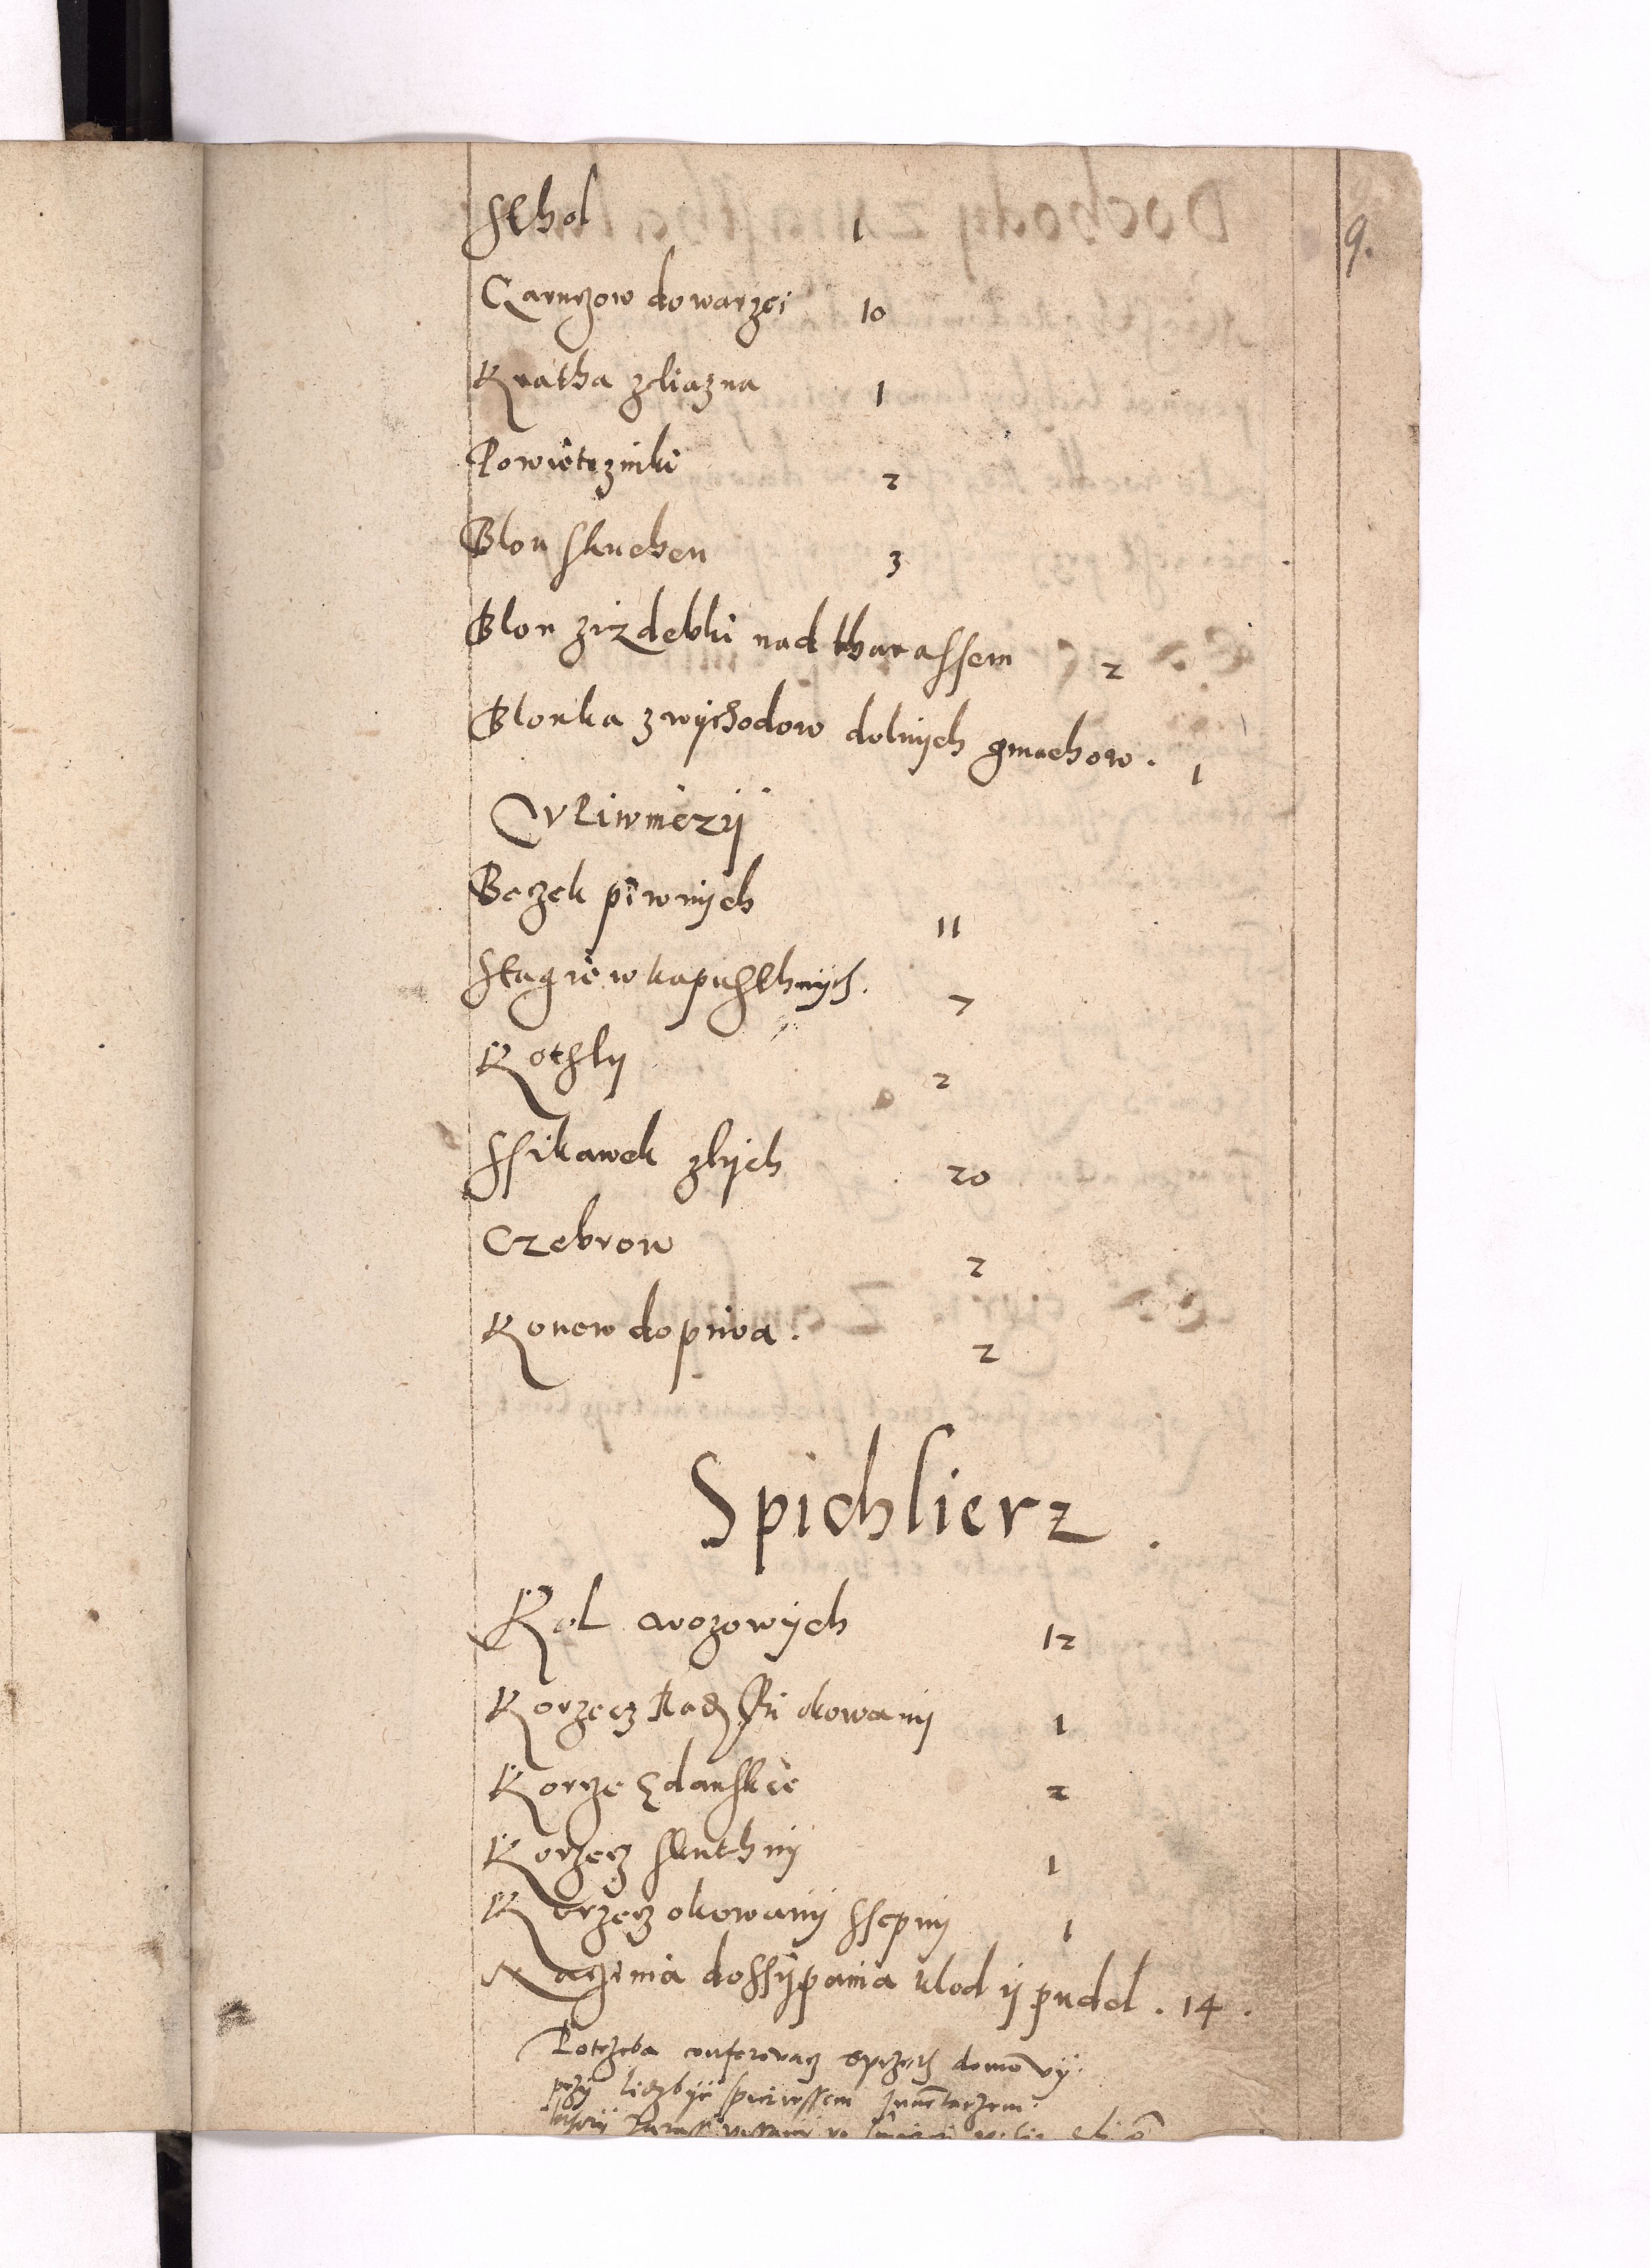 9.
Sthol 1
Czarnzow do warzei 10
Kratha zeliazna 1
Powietrzniki 2
Blon skuchen 3
Blon zizdebki nad tharassem 2
Blonka zwychodow dolnych gmachow. 1
W Piwniczy
Beczek piwnych 11
Stagiew kapusthnych. 7
Kothly 2
Ssikawek zlych 20
Czebrow 2
Konew do piwa. 2
Spichlierz.
Kol wozowych 12
Korzecz Radzski okowany 1
Korcze Gdanskie 2
Korzecz skuthny 1
Korzecz okowany ssepny 1
Naczinia do ssypania klod y pudel. 14.
Potrzeba domowy
przy liczbye inuentarzem